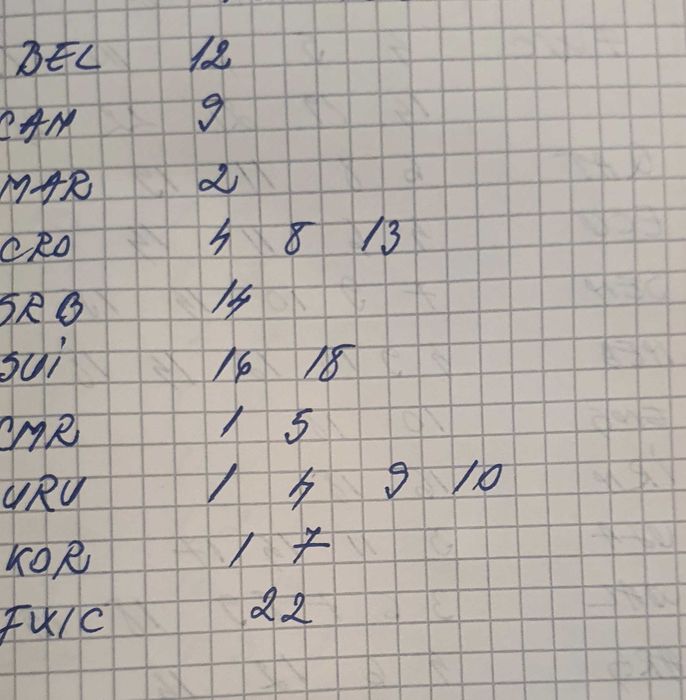 BEL 12
CAN 9
MAR 2
CRO 4 8 13
SRB 14
SUI 16 18
CMR 1 5
URU 1 4 9 10
KOR 1 7
FWC 22